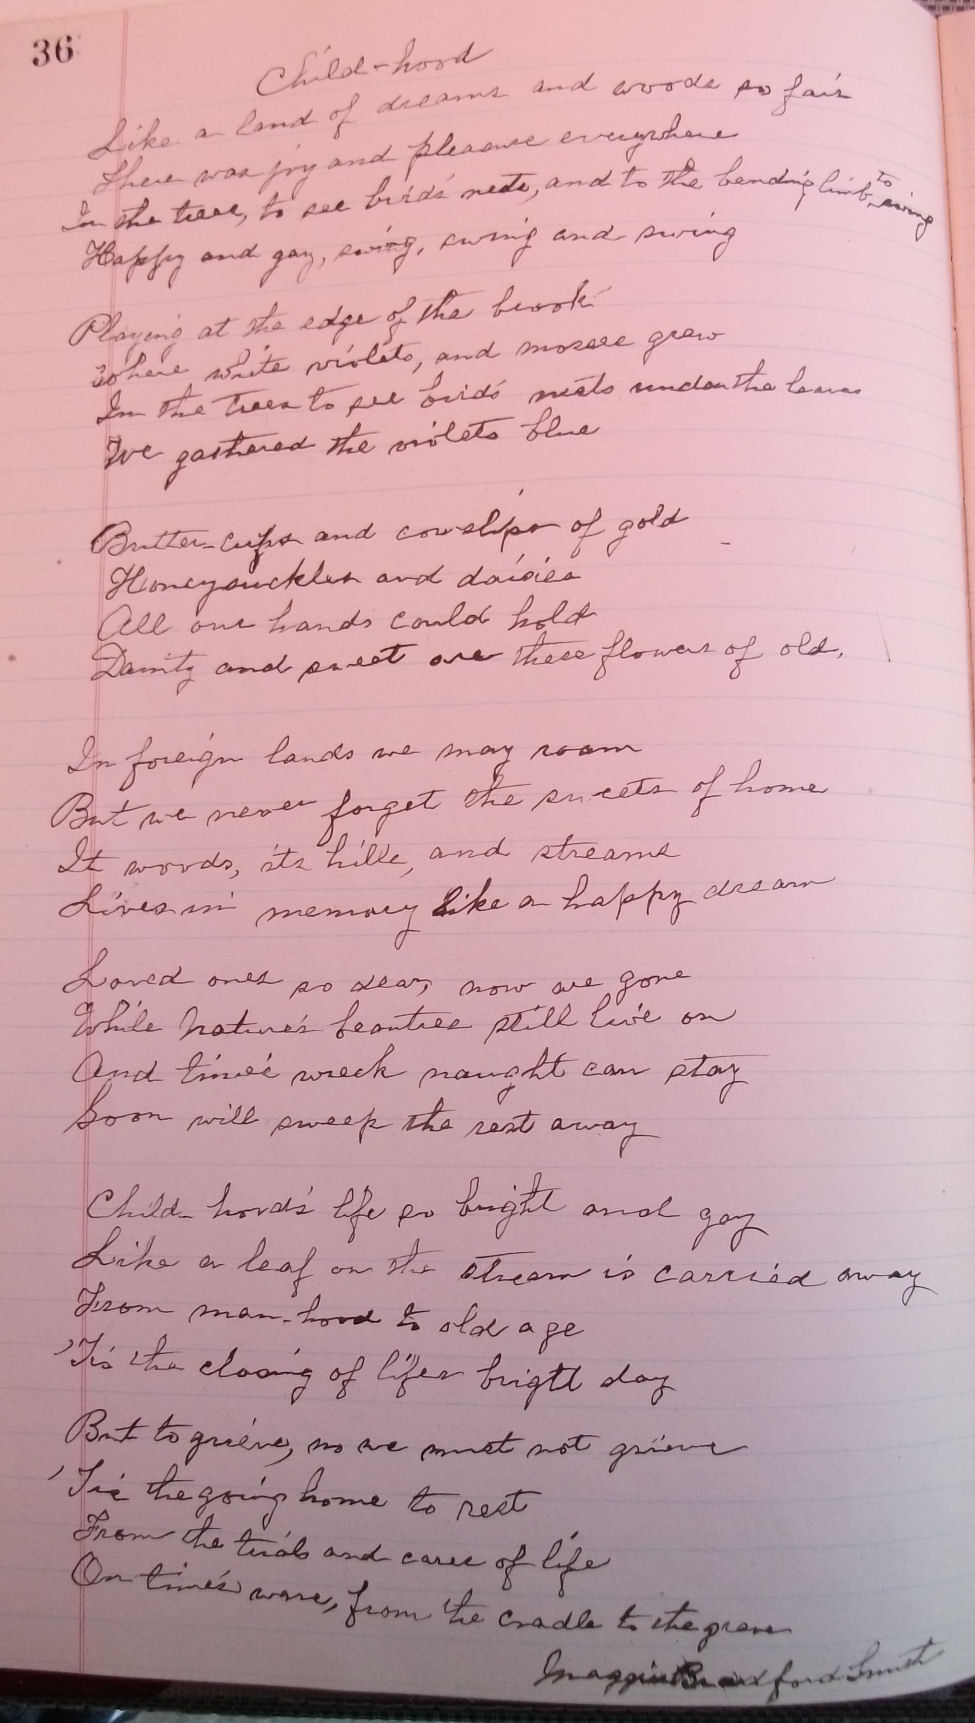 36
Child-hood
Like a land of dreams and woods so fair
There was joy and pleasure everywhere
In the trees, to see bird's nests, and to the bending limb, to swing
Happy and gay, swing, swing and swing
Playing at the edge of the brook
Where white violets, and mosses grew
In the trees to see birds' nests under the leaves
We gathered the violets blue
Butter-cups and cowslips of gold
Honeysuckles and daisies
All our hands could hold
Dainty and sweet are these flowers of old.
In foreign lands we may roam
But we never forget the sweets of home
It woods, its hills, and streams
Lives in memory like a happy dream
Loved ones so dear, now are gone
While Nature's beauties still live on
And time's wreck naught can stay
Soon will sweep the rest away
Child-hood's life so bright and gay
Like a leaf on the stream is carried away
From man-hood to old age
'Tis the closing of lifes bright day
But to grieve, no we must not grieve
'Tis the going home to rest
From the trials and cares of life
On time's wave, from the cradle to the grave
Maggie Bradford Smith